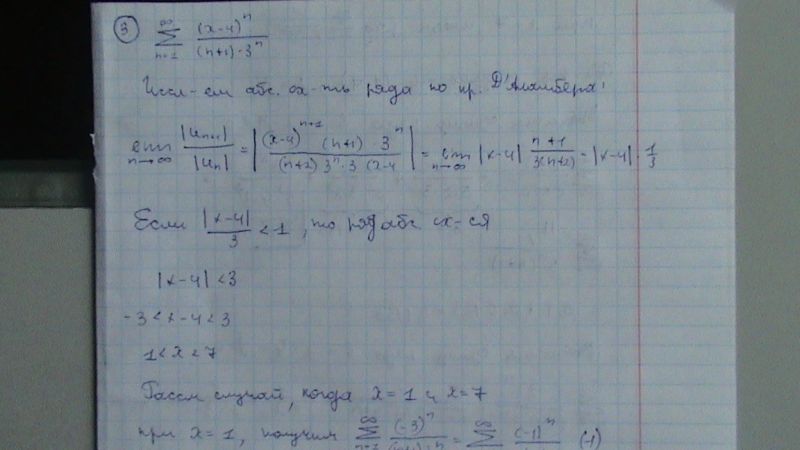 ③ ∞∑n=1 (x-4)^n / ((n+1)·3^n)
Иссл-ем абс. сх-ть ряда по пр. Д'Аламбера:
lim n→∞ |Un+1| / |Un| = |(x-4)^(n+1) (n+1)·3^n / ((n+2) 3^n·3 (x-4| = lim n→∞ |x-4| (n+1) / (3(n+2)) = |x-4|·1/3
Если |x-4|/3 < 1, то ряд абс сх-ся
|x-4|<3
-3<x-4<3
1<x<7
Рассм случай, когда x=1 и x=7
при x=1, получим ∞∑n=1 (-3)^n = ∞∑ (-1)^n (-1)